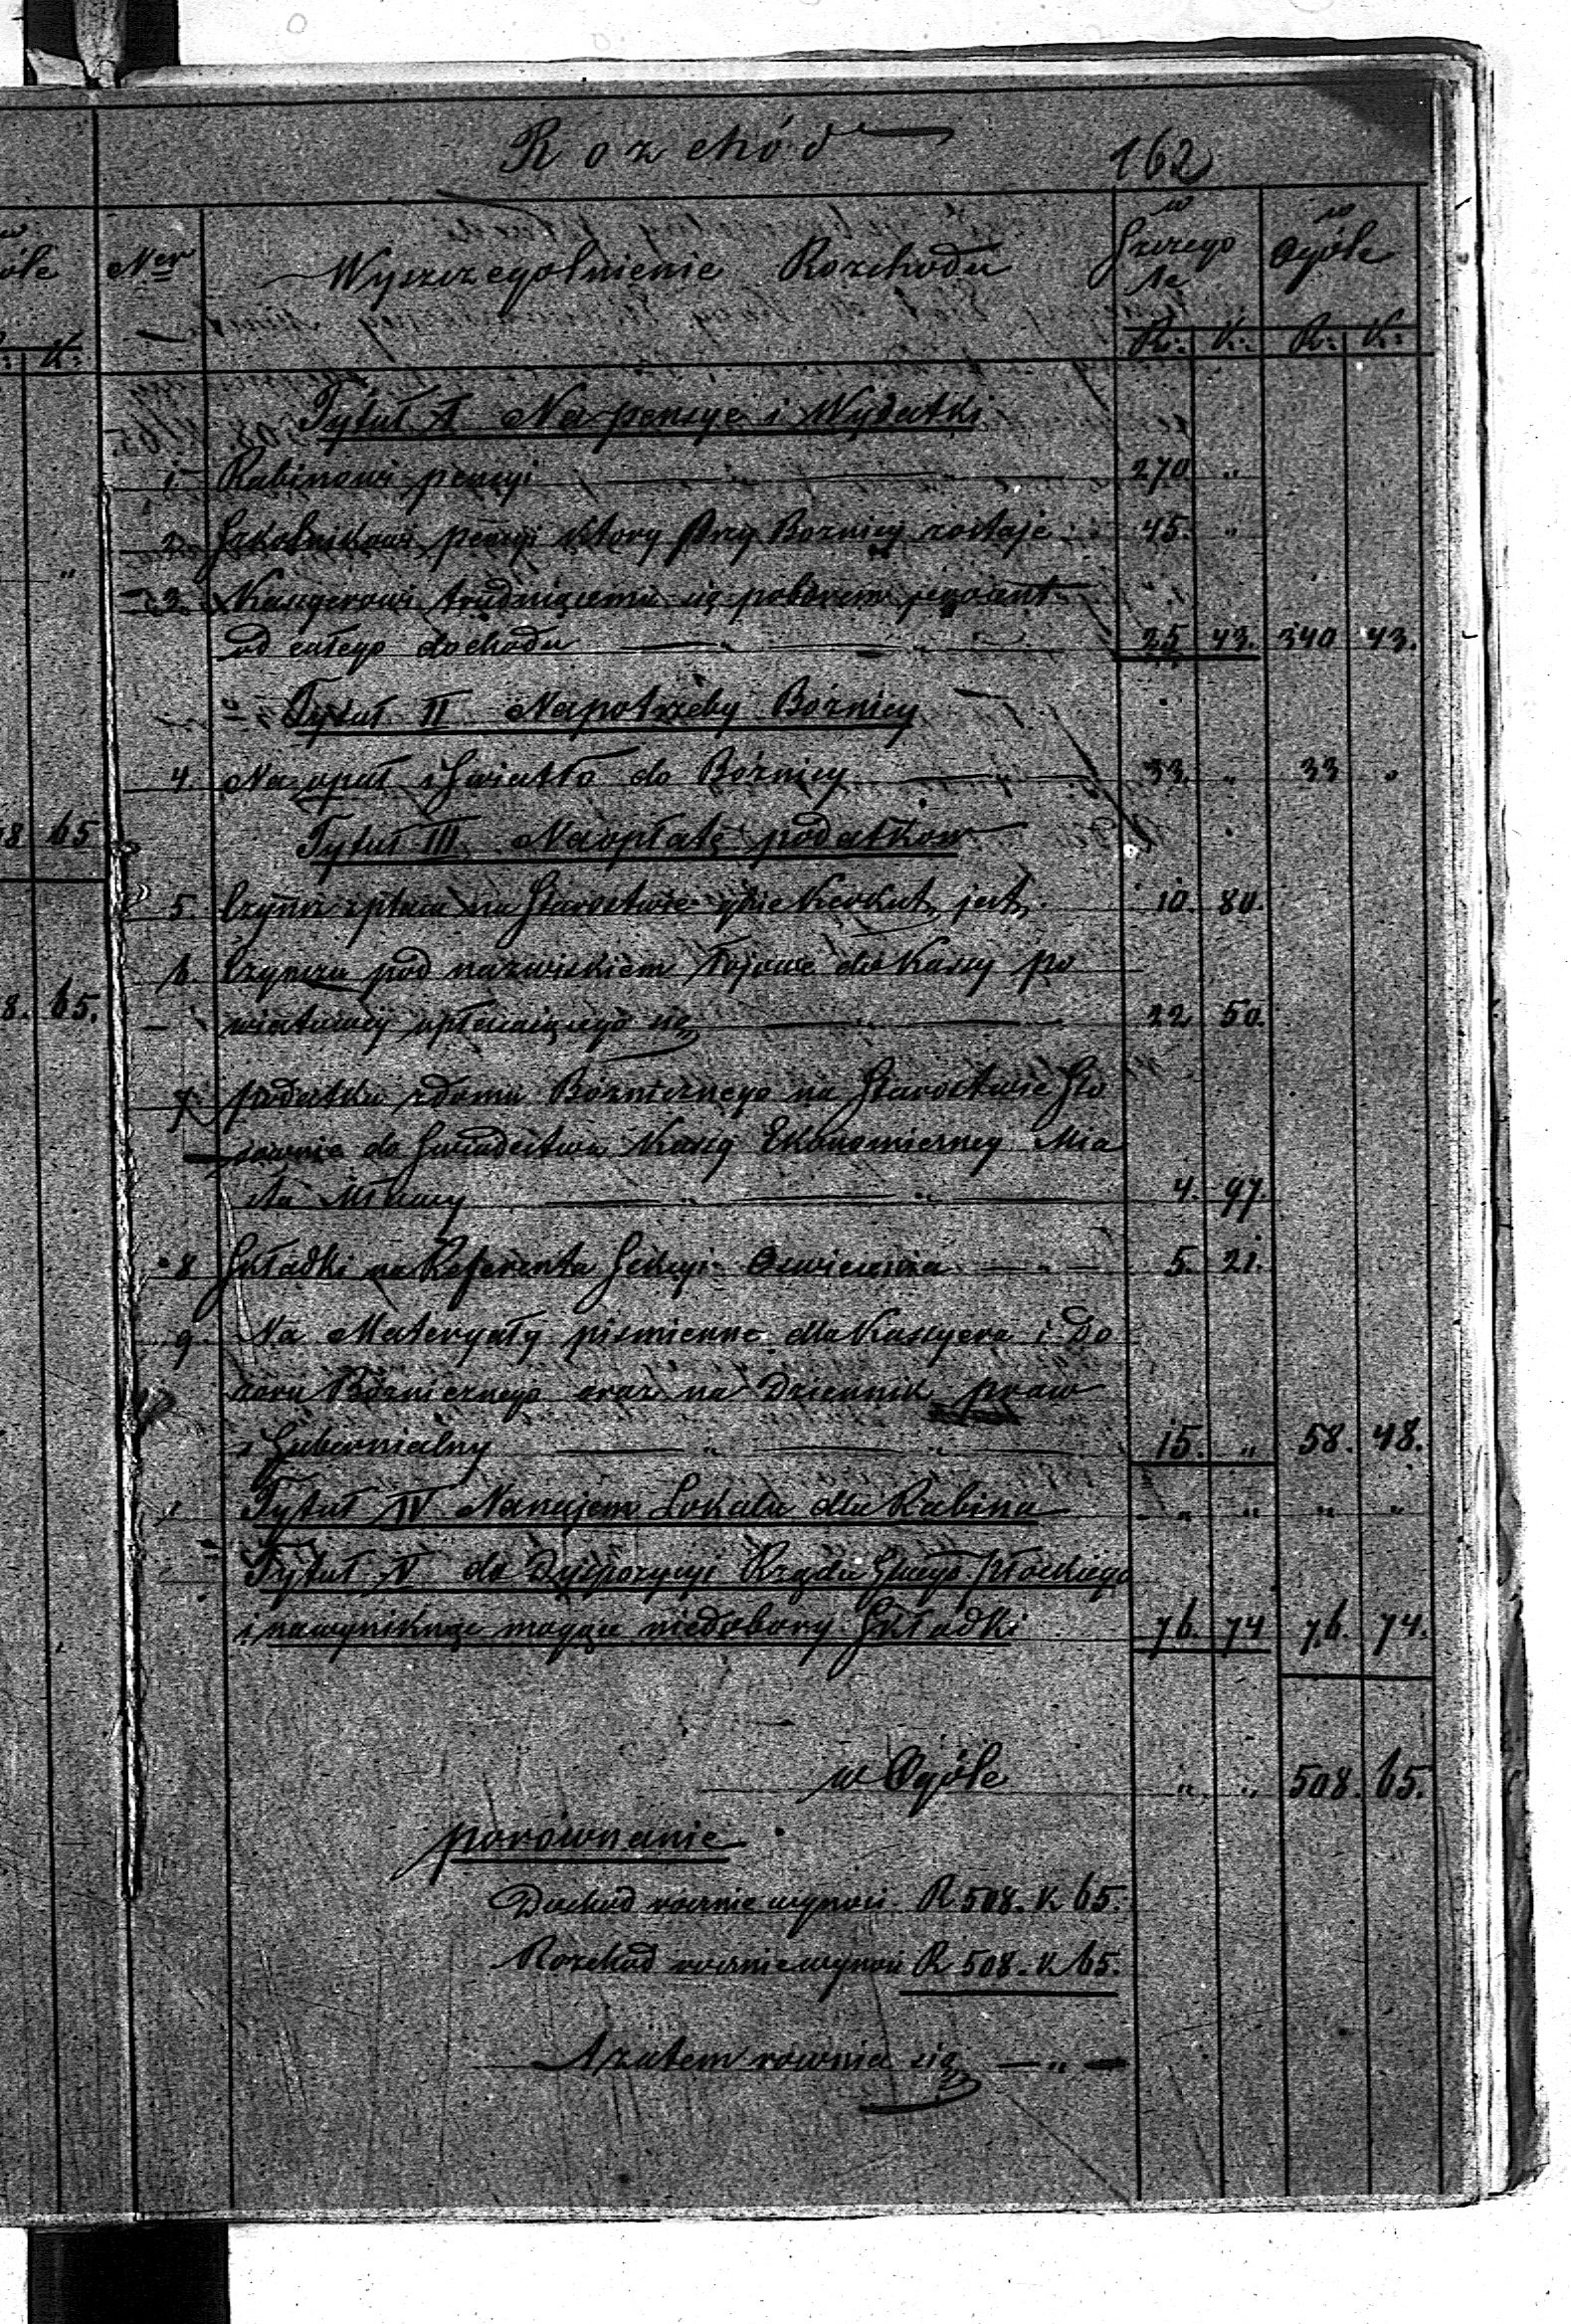 Rozchód
162
Ner
Wyszczególnienie Rozchodu
w Szczegó le
w Ogóle
R: K: R: K:
Tytuł I Na pensye i Wydatki
1 Rabinowi pensyi 270 "
2 Szkolnikowi pensyi ktory przy Boznicy zostaje 45. "
3. Kassyerowi trudniącemu się poborem
od całego dochodu 25 43. 340 43.
Tytuł II Na potrzeby Bóżnicy
4. Na opał i Swiatło do Bóżnicy 33. " 33 "
Tytuł III Na opłatę podatkow
5 na Starostwie Kerkut jest 10. 80.
6. Czynszu pod nazwiskiem Łojowe do Kassy po
wiatowey opłacaiącego się 22 50.
7. podatku z domu Bóznicznego na Starostwie Sto
sownie do Swiadectwa Kassy Ekonomiczney Mia
sta Mławy 4. 97.
8 Składki na Referenta Sekcyi Oswiecenia 5. 21.
9. Na Materyały pismienne dla Kassyera i Do
zoru Bóżnicznego oraz na Dziennik praw
i Gubernialny 15. " 58. 48.
Tytuł IV Na najem Lokalu dla Rabina " " " "
Tytuł V do Dyspozycyi Rządu Gnego Płockiego
i na wyniknąc mogące niedobory Składki 76. 74 76. 74.
w Ogóle " " 508. 65.
porównanie
Dochod rocznie wynosi R 508. K 65.
Rozchod rocznie wynosi R 508. K 65.
A zatem rownia się — " —
ole
K:
"
8 65
8. 65.